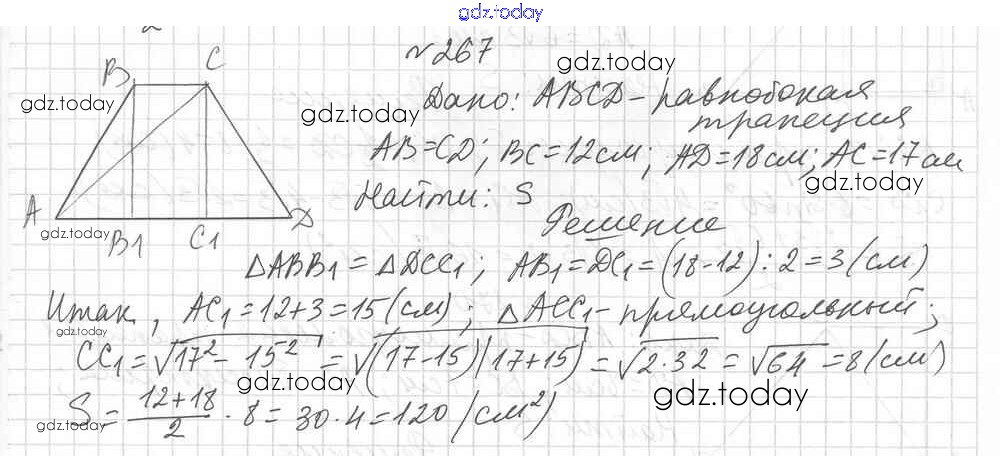 gdz.today
№ 267
B C
gdz.today
gdz.today
Дано: ABCD - равнобокая
трапеция
gdz.today
AB=CD; BC=12 см; AD=18 см; AC=17 см
gdz.today
Найти: S
A D
gdz.today
B1 C1
Решение
△ABB1 = △DCC1; AB1=DC1=(18-12):2=3(см)
Итак, AC1=12+3=15(см); △ACC1- прямоугольный;
gdz.today
CC1=√17²- 15² =√(17-15)(17+15)=√2·32=√64=8(см)
gdz.today
gdz.today
S= 12+18/2 · 8=30·4=120 (см²)
gdz.today